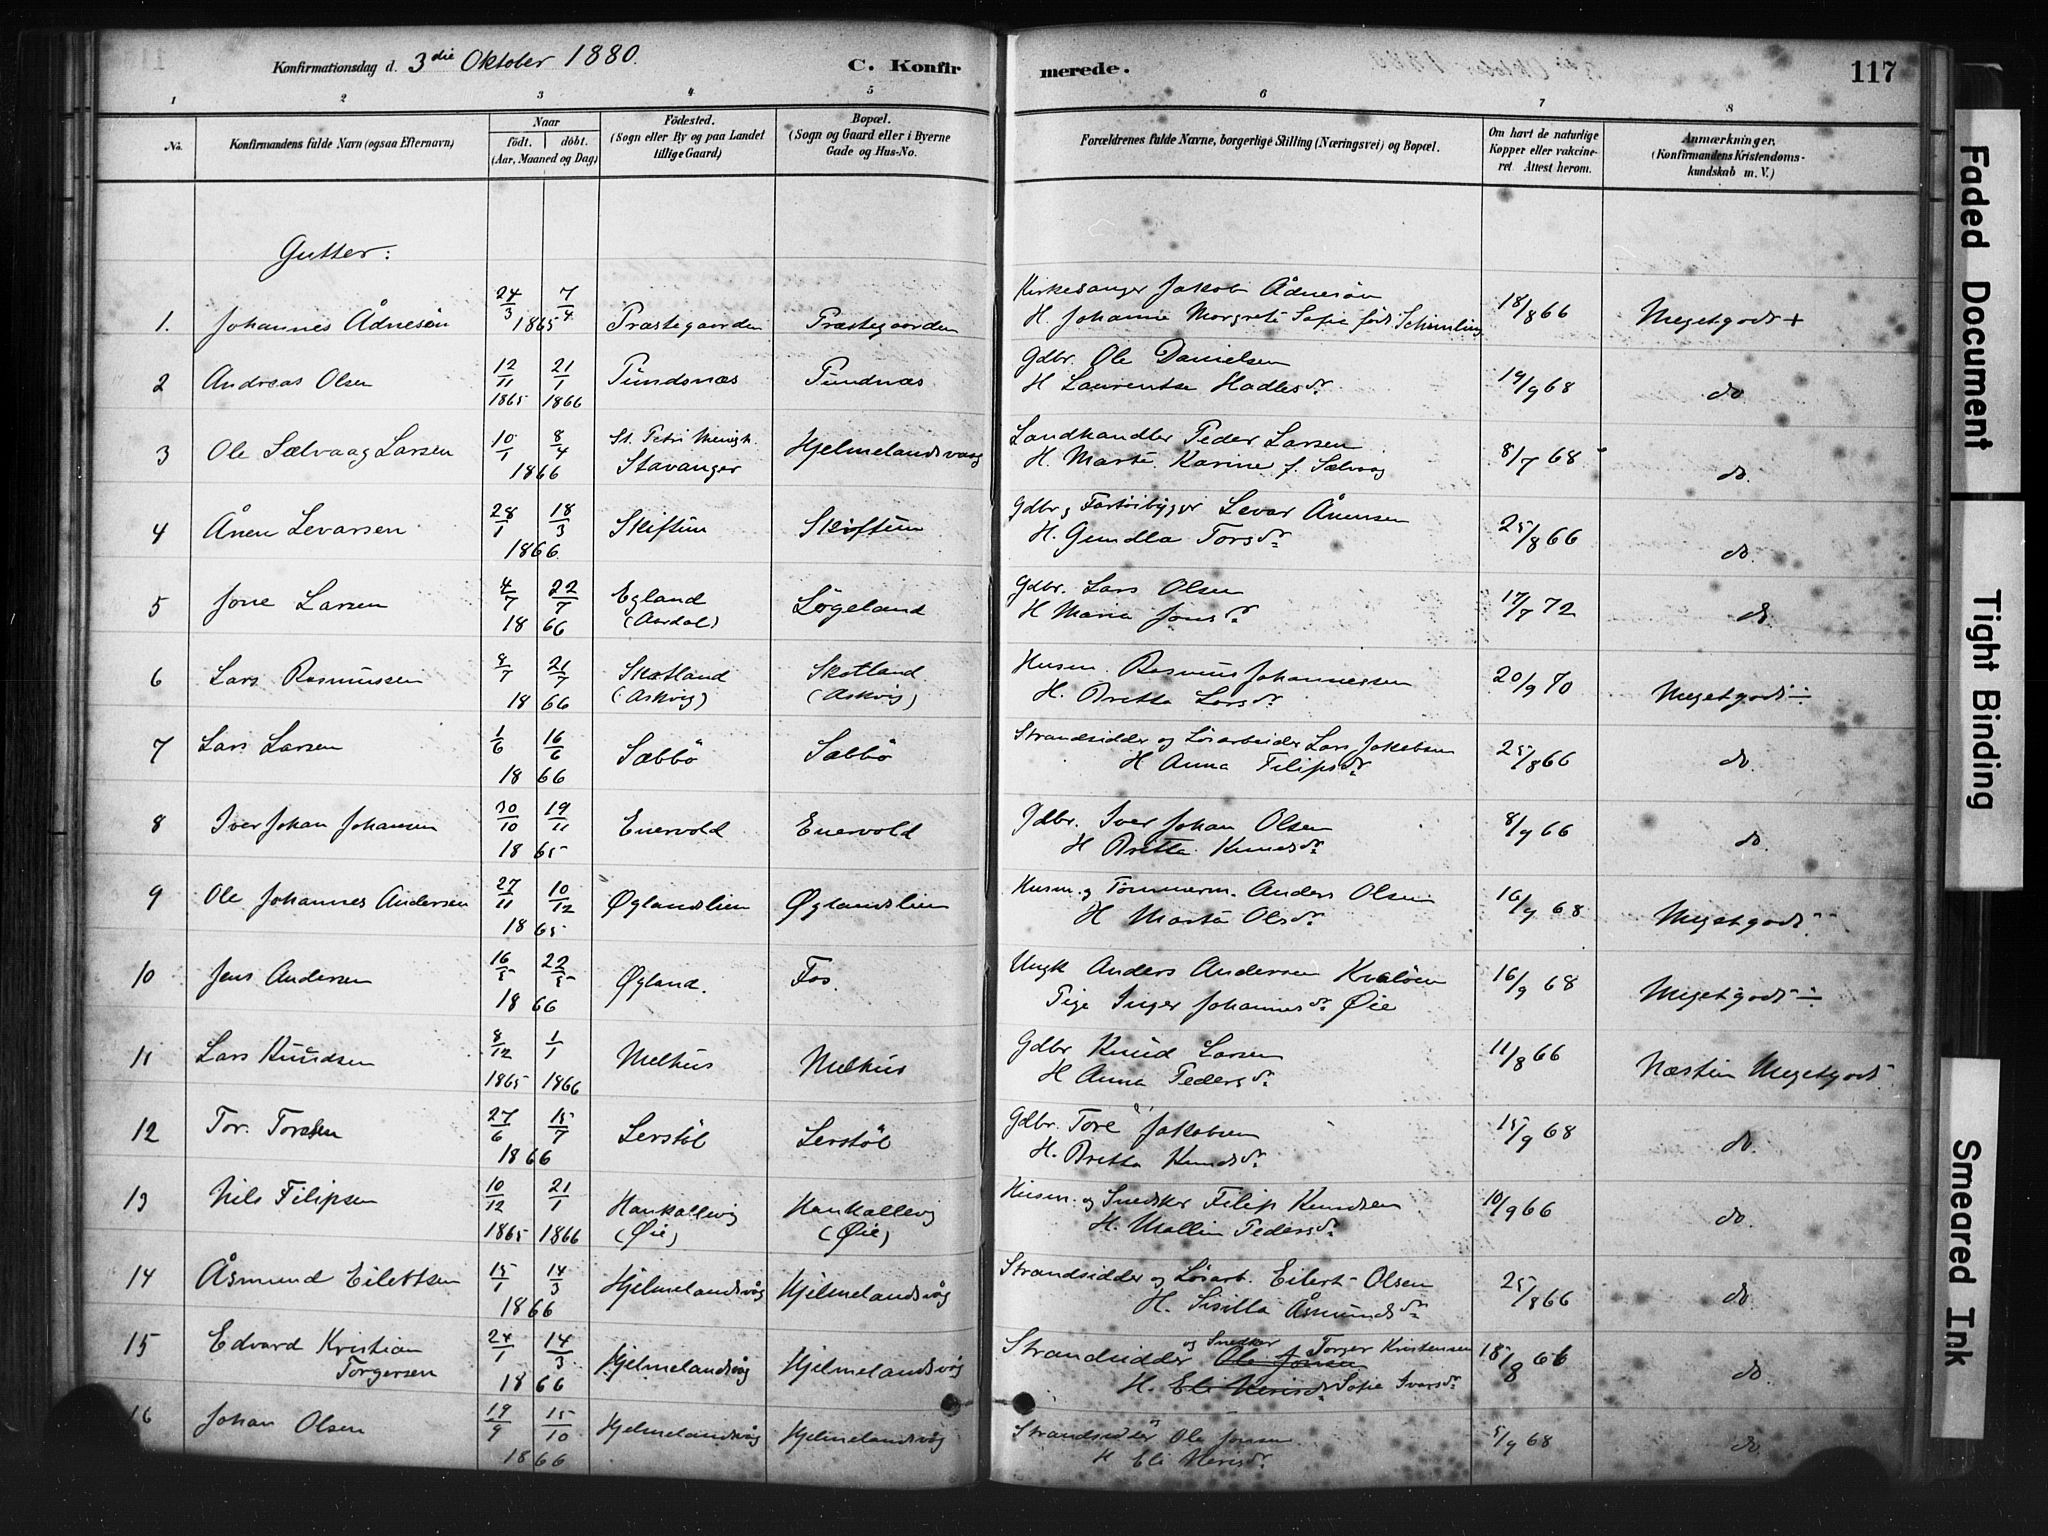 Konfirmationsdag d. 3die Oktober 1880. C. Konfirmerede. 117
1 2 3 4 5 6 7 8
No. Konfirmandens fulde Navn (ogsaa Efternavn) Naar födt. döbt. (Aar, Maaned og Dag) Födested. (Sogn eller By og paa Landet tillige Gaard) Bopæl. (Sogn og Gaard eller i Byerne Gade og Hus-No. Forældrenes fulde Navne, borgerlige Stilling (Næringsvei) og Bopæl. Om havt de naturlige Kopper eller vakcineret. Attest herom. Anmærkninger. (Konfirmandens Kristendomskundskab m. V.)
Gutter:
1. Johannes Ådnesön 24/3 7/4 1865 Præstegaarden Præstegaarden Kirkesanger Jakob Ådnesön 18/8 66 Megetgodt +
H. Johanne Margrete Sofie födt Schimling
2 Andreas Olsen 12/11 1865 21/1 1866 Pundsnæs Pundnæs Gdbr. Ole Danielsen 19/9 68 do.
H Laurentse Hadlesdr.
3 Ole Sælvaag Larsen 10/1 8/4 1866 St. Petri Menigh. Stavanger Hjelmelandsvaag Landhandler Peder Larsen 8/7 68 do.
H. Marte Karine f. Sælvaag
4 Ånen Levarsen 28/1 18/3 1866 Skiftun Skiftun Gdbr. og Fartöibygger Levar Ånensen 25/8 66 do.
H. Gundla Torsdr.
5 Jone Larsen 4/7 22/7 1866 Egland (Aardal) Lögeland Gdbr. Lars Olsen 17/7 72 do
H Maria Jonsdr.
6 Lars Rasmussen 8/7 21/7 1866 Skotland (Askvig) Skotland (Askvig) Husm. Rasmus Johannessen 20/9 70 Megetgodt ÷
H. Britta Larsdr.
7 Lars Larsen 1/6 16/6 1866 Sæbbö Sæbbö Strandsidder og Lösarbeider Lars Jakobsen 25/8 66 do.
H Anna Filipsdr.
8 Iver Johan Johansen 30/10 19/11 1865 Enervold Enervold Gdbr. Iver Johan Olsen 8/9 66 do.
H Britta Knudsdr.
9 Ole Johannes Andersen 27/11 10/12 1865 Øglandslien Øglandslien Husm. og Tömmerm. Anders Olsen 16/9 68 Megetgodt
H Marta Olsdr.
10 Jens Andersen 16/5 22/5 1866 Øgland. Fos. Ungk Anders Andersen Kvalöen 16/9 68 Megetgodt ÷
Pige Inger Johannesdr. Øie
11 Lars Knudsen 8/12 1865 1/1 1866 Melhus Melhus Gdbr Knud Larsen 11/8 66 Næsten Megetgodt
H Anna Pedersdr.
12 Tor. Torsen 27/6 15/7 1866 Lerstöl Lerstöl Gdbr. Tore Jakobsen 15/9 68 do.
H. Britta Knudsdr.
13 Nils Filipsen 10/12 1865 21/1 1866 Hankallevig (Øie) Hankallevig (Øie) Husm. og Snedker Filip Knudsen 10/9 66 do.
H. Mallin Pedersdr.
14 Åsmund Eilertsen 15/1 14/3 1866 Hjelmelandsvåg Hjelmelandsvåg Strandsidder og Lösarb. Eilert Olsen 25/8 66 do.
H. Sisilla Åsmundsdr.
15 Edvard Kristian Torgersen 24/1 14/3 1866 Hjelmelandsvåg Hjelmelandsvåg Strandsidder og Snedker Ole Jonsen Torger Kristensen 18/8 66 do.
H. Eli Sofie Ivarsdr.
16 Johan Olsen 19/9 15/10 1866 Hjelmelandsvåg Hjelmelandsvåg Strandsidder Ole Jonsen 5/9 68 do.
H Eli
Faded Document
Tight Binding
Smeared Ink